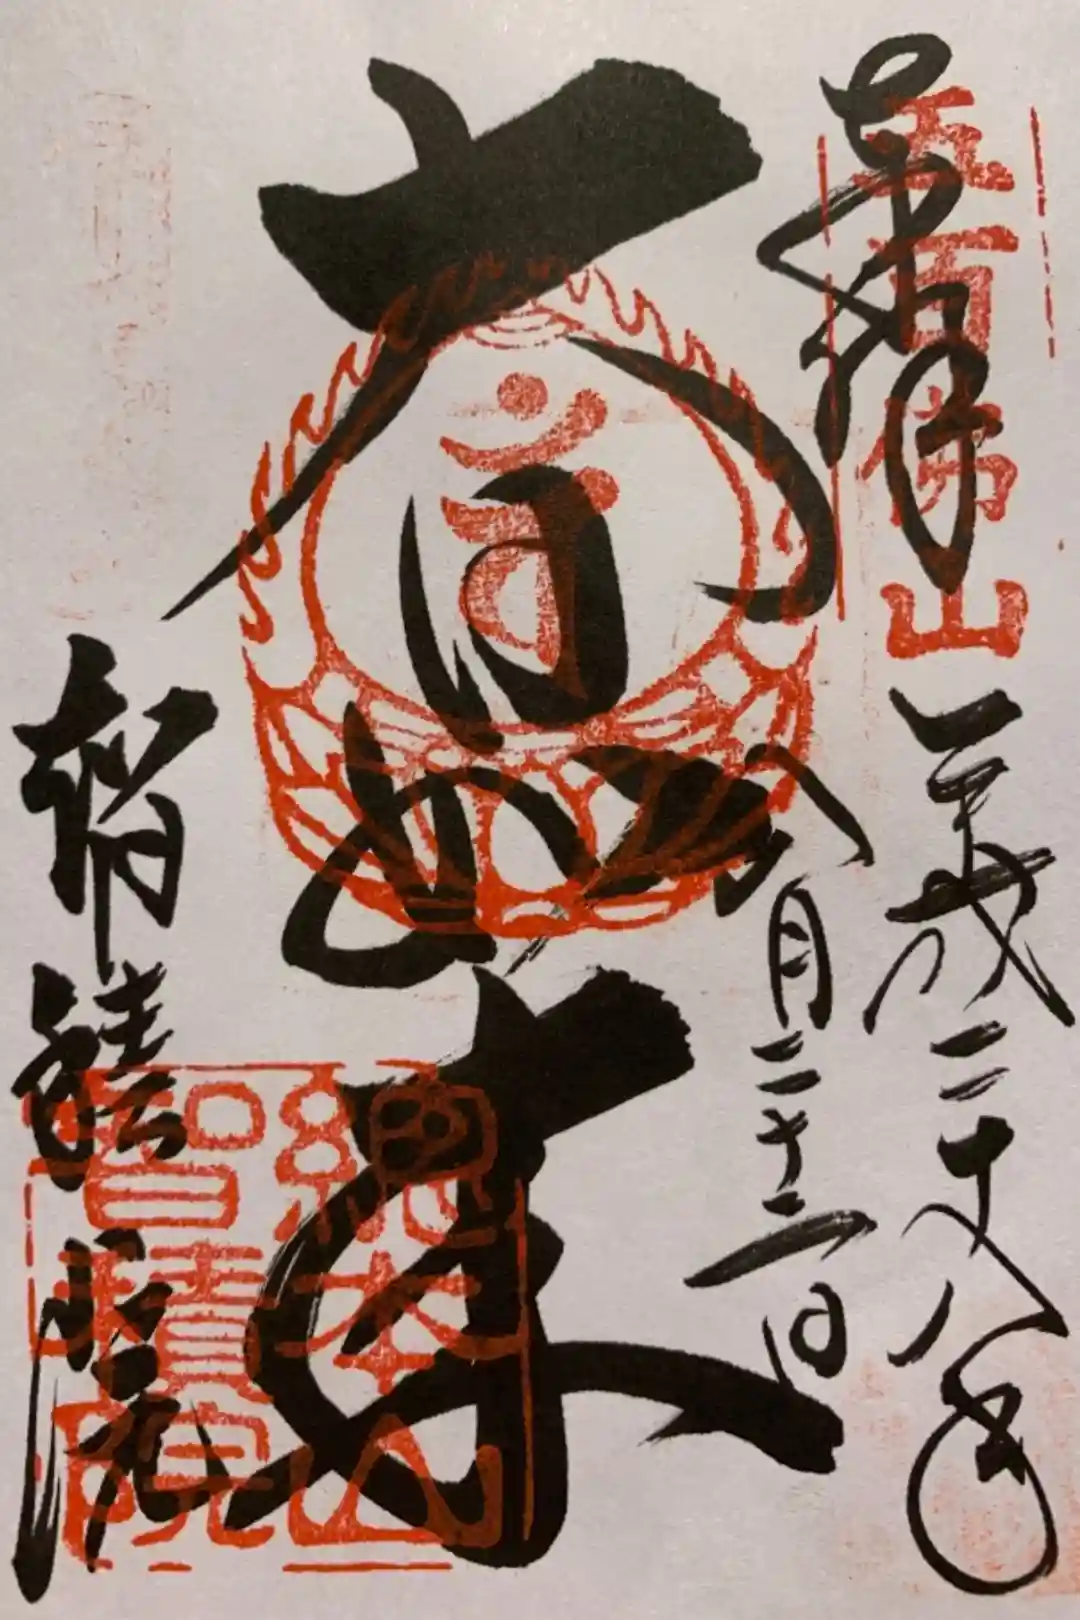 奉拝
五百佛山
平成二十八年
八月二十二日
大日如来
智積院
總本山
智積院